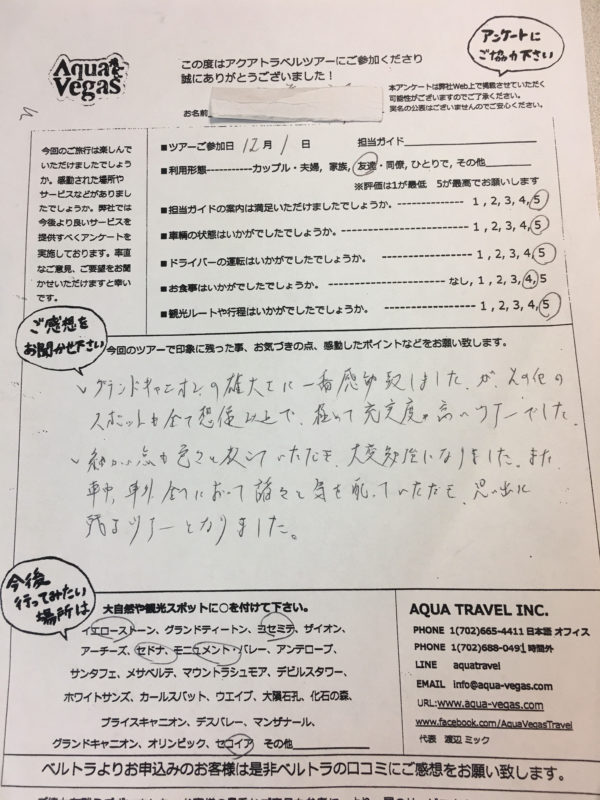 Aqua Vegas
この度はアクアトラベルツアーにご参加くださり
誠にありがとうございました！
アンケートに
ご協力下さい
本アンケートは弊社Web上で掲載させていただく
可能性がございますのでご了承ください。
実名の公表はございませんのでご安心ください。
お名前
今回のご旅行は楽しんで
いただけましたでしょう
か。感動された場所や
サービスなどがありまし
たでしょうか。弊社では
今後より良いサービスを
提供すべくアンケートを
実施しております。率直
なご意見、ご要望をお聞
かせいただけますと幸い
です。
■ツアーご参加日 12 月 1 日 担当ガイド
■利用形態-----------カップル・夫婦, 家族, 友達・同僚, ひとりで, その他
※評価は1が最低 5が最高でお願いします
■担当ガイドの案内は満足いただけましたでしょうか。 --------------- 1 , 2, 3, 4, 5
■車輌の状態はいかがでしたでしょうか。 --------------- 1 , 2, 3, 4, 5
■ドライバーの運転はいかがでしたでしょうか。 --------------- 1 , 2, 3, 4, 5
■お食事はいかがでしたでしょうか。 --------------- なし, 1 , 2, 3, 4, 5
■観光ルートや行程はいかがでしたでしょうか。 --------------- 1 , 2, 3, 4, 5
ご感想を
お聞かせ下さい
今回のツアーで印象に残った事、お気づきの点、感動したポイントなどをお願い致します。
グランドキャニオンの雄大さに一番感動致しましたが、その他の
スポットも全て想像以上で、極めて充実度の高いツアーでした。
細かい点も色々と教えていただき、大変勉強になりました。また
車中、車外全てにおいて諸々と気を配っていただき、思い出に
残るツアーとなりました。
今後
行ってみたい
場所は
大自然や観光スポットに○を付けて下さい。
イエローストーン、グランドティートン、ヨセミテ、ザイオン、
アーチーズ、セドナ、モニュメント・バレー、アンテロープ、
サンタフェ、メサベルデ、マウントラシュモア、デビルスタワー、
ホワイトサンズ、カールスバット、ウエイブ、大隕石孔、化石の森、
ブライスキャニオン、デスバレー、マンザナール、
グランドキャニオン、オリンピック、セコイア その他
AQUA TRAVEL INC.
PHONE 1(702)665-4411 日本語 オフィス
PHONE 1(702)688-0491 時間外
LINE aquatravel
EMAIL info@aqua-vegas.com
URL:www.aqua-vegas.com
www.facebook.com/AquaVegasTravel
代表 渡辺 ミック
ベルトラよりお申込みのお客様は是非ベルトラの口コミにご感想をお願い致します。